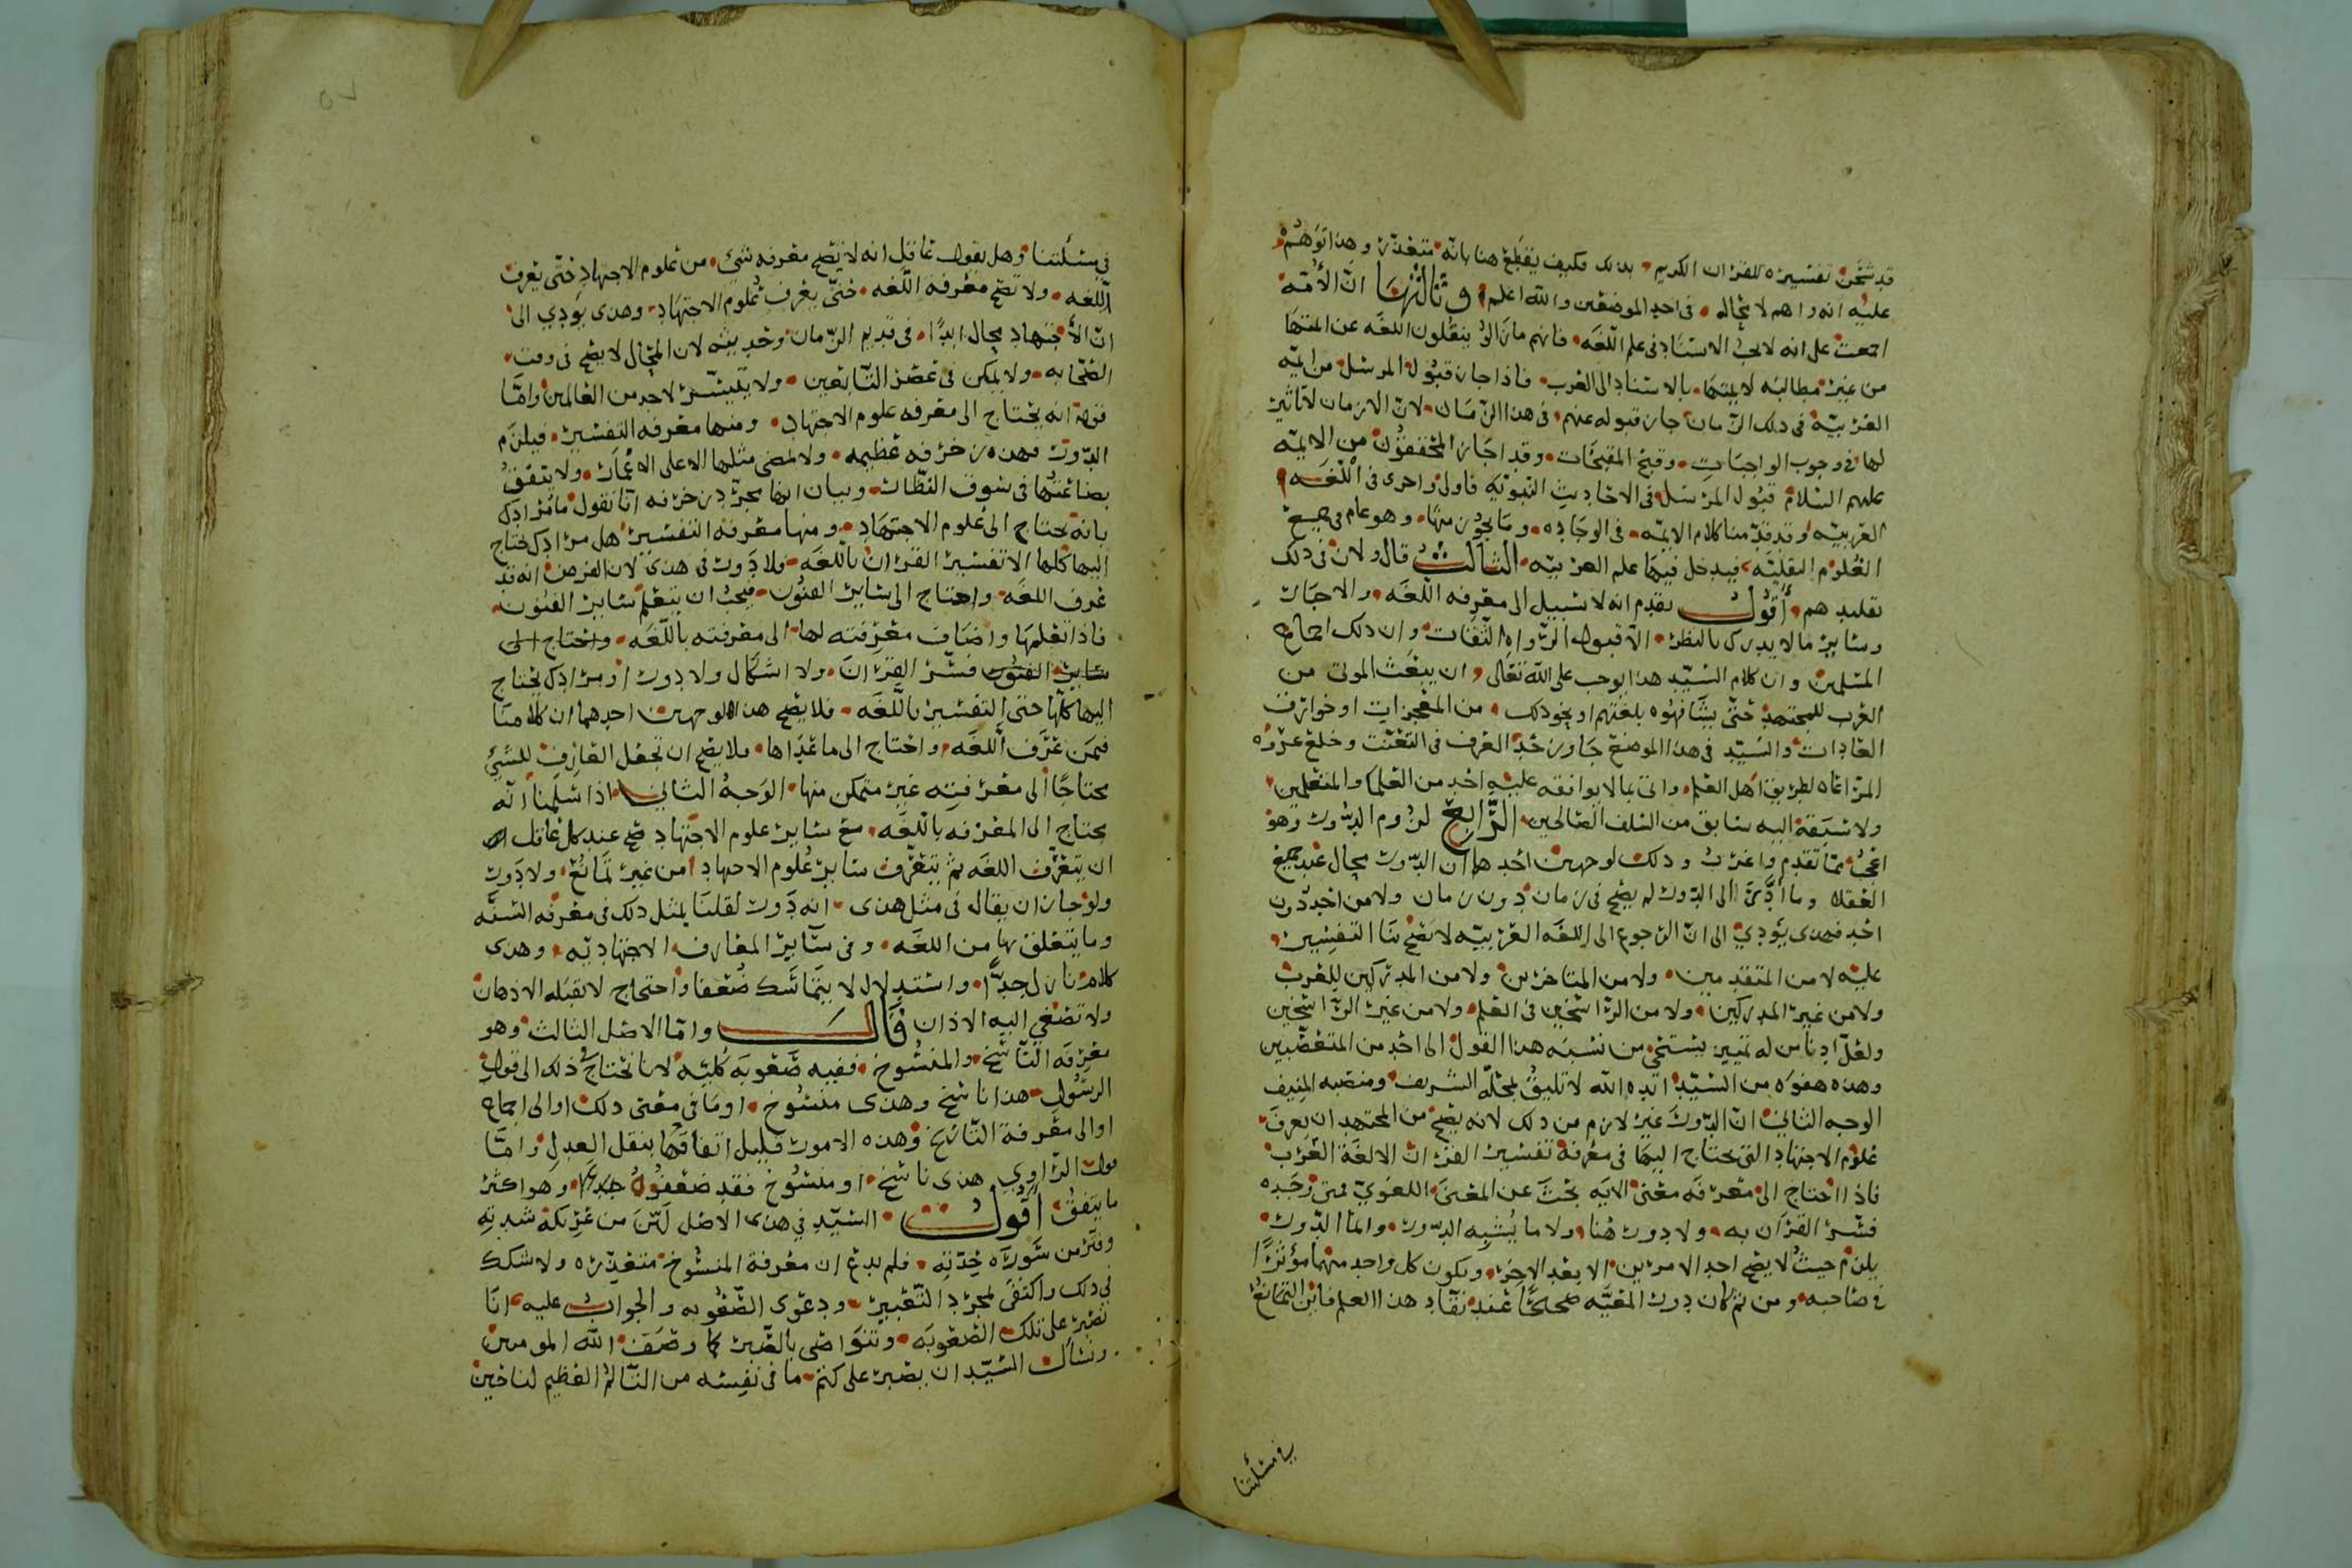 قد شحن تفسيره للقران الكريم بذلك فكيف يقطع هنا بانه متعذر وهذا توهم
عليه انه واهم لا محاله في احد الموضعين والله اعلم وثالثها ان الأمة
اجمعت على انه لا يجب الاسناد في علم اللغه فانهم ما زالوا ينقلون اللغه عن ائمتها
من غير مطالبه لايمتها بالاسناد الى العرب فاذا جاز قبول المرسل من ايمة
العربيّة في ذلك الزمان جاز قبوله عنهم في هذا الزمان لان الازمان لا تاثير
لها في وجوب الواجبات وقبح المقبحات وقد اجاز المحققون من الايمه
عليهم السلام قبول المرسل في الاحاديث النبويه فاولى واحرى في اللغه
العربيه وقد قدمنا كلام الايمه في الوجاده وما يجوز منها وهو عام في جميع
العلوم النقليّه فيدخل فيها علم العربيه الثالث قال ولان في ذلك
تقليد هم أقول تقدم انه لا سبيل الى معرفه اللغه والاخبار
وساير ما لا يدرك بالنظر الا قبول الرواه الثقات وان ذلك اجماع
المسلمين وان كلام السيّد هذا يوجب على الله تعالى ان يبعث الموتى من
العرب للمجتهد حتى يشافهوه بلغتهم او نحو ذلك من المعجزات او خوارق
العادات والسيّد في هذا الموضع جاوز حد العرف في التعنت وخلع عروه
المراعاه لطريق اهل العلم واتى بما لا يوافقه عليه احد من العلما والمتعلمين
ولا سبقه اليه سابق من السلف الصالحين الرابع لزوم الدور وهو
اعجب مما تقدم واغرب وذلك لوجهين احدهما ان الدور محال عند جميع
العقلا وما أدّى الى الدور لم يصح في زمان دون زمان ولا من احد دون
احد فهذى يؤدي الى ان الرجوع الى اللغه العربيه لا تصح بنا التفسير
عليه لا من المتقدمين ولا من المتاخرين ولا من المدركين للعرب
ولا من غير المدركين ولا من الراسخين في العلم ولا من غير الراسخين
ولعل ادنا من له تمييز يستحي من نسبه هذا القول الى احد من المتعصبين
وهذه هفوه من السيّد ايده الله لا تليق بمحله الشريف ومنصبه المنيف
الوجه الثاني ان الدور غير لازم من ذلك لانه يصح من المجتهد ان يعرف
علوم الاجتهاد التي يحتاج اليها في معرفة تفسير القران الا لغة العرب
فاذا احتاج الى معرفه معنى الايه بحث عن المعنى اللغوي فمتى وجده
فسّر القرآن به ولا دور هنا ولا ما يُشبه الدور وانما الدور
يلزم حيث لا يصح احد الامرين الا بعد الاخر ويكون كل واحد منهما مؤثرًا
في صاحبه ومن ثم كان دور المعيّه صحيحًا عند نقاد هذا العلم فاين التمانع
في مسئلتنا
في مسئلتنا وهل يقول عاقل انه لا يصح معرفه شي من علوم الاجتهاد حتى يعرف
اللغه ولا تصح معرفة اللغه حتى يعرف علوم الاجتهاد وهذى يؤدي الى
ان الاجتهاد محال ابدًا في قديم الزمان وحديثه لان المحال لا يصح في وقت
الصحابه ولا يمكن في عصر التابعين ولا يتيسر لاحد من العالمين وامّا
قوله انه يحتاج الى معرفه علوم الاجتهاد ومنها معرفه التفسير فيلزم
الدور فهذه زخرفه عظيمه ولا تمضى مثلها الا على الاغمار ولا يتفق
بضاعتها في سوق النظار وبيان انها مجرد زخرفه انا نقول ما مرادك
بانه يحتاج الى علوم الاجتهاد ومنها معرفه التفسير هل مرادك يحتاج
اليها كلها الا تفسير القران باللغه فلا دور في هذى لان الفرض انه قد
عرف اللغه واحتاج الى ساير الفنون فيجب ان يتعلم ساير الفنون
فاذا تعلمها واضاف معرفته لها الى معرفته باللغه واحتاج الى
ساير الفنون فسّر القران ولا اشكال ولا دور او مرادك يحتاج
اليها كلها حتى التفسير باللغه فلا يصح هذا لوجهين احدهما ان كلامنا
فيمن عرف اللغه واحتاج الى ما عداها فلا يصح ان تجعل العارف للشي
محتاجًا الى معرفته غير متمكن منها الوجه الثاني اذا سلمنا انه
يحتاج الى المعرفه باللغه مع ساير علوم الاجتهاد صح عند كل عاقل
ان يتعرف اللغه ثم يتعرف ساير علوم الاجتهاد من غير تمانع ولا دور
ولو جاز ان يقال في مثل هذى انه دور لقلنا بمثل ذلك في معرفه السنّه
وما يتعلق بها من اللغه وفي ساير المعارف الاجتهاديه وهذى
كلام نازل جدًّا واستدلال لا يتماسك ضعفا واحتجاج لا تقبله الاذهان
ولا تصغي اليه الاذان قال وامّا الاصل الثالث وهو
معرفه الناسخ والمنسوخ ففيه صعوبه كليّه لانا نحتاج في ذلك الى قول
الرسول هذا ناسخ وهذى منسوخ او ما في معنى ذلك او الى اجماع
او الى معرفة التاريخ وهذه الامور قليل اتفاقها بنقل العدل وامّا
قول الراوي هذى ناسخ او منسوخ فقد ضعفوه جدا وهو اكثر
ما يتفق أقول السيّد في هذى الاصل ليّن من عريكة شدته
وفتر من سوره حدّته فلم يدع ان معرفة المنسوخ متعذره ولا شكك
في ذلك واكتفى بمجرد التعبير ودعوى الصعوبه والجواب عليه انا
نصبر على تلك الصعوبه ونتواصى بالصبر كما وصف الله المومنين
ونسأل السيّد ان يصبر على كتم ما في نفسه من التألم العظيم لنا حين